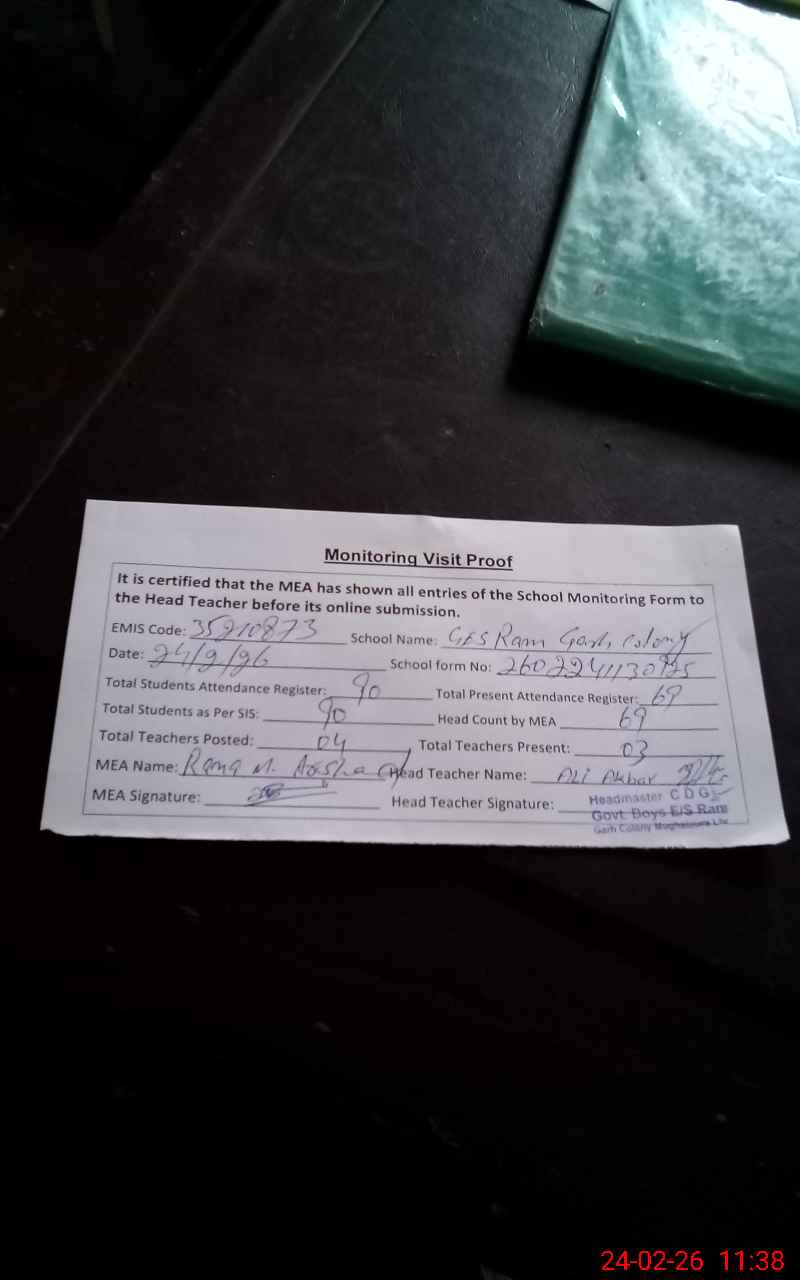 Monitoring Visit Proof
It is certified that the MEA has shown all entries of the School Monitoring Form to
the Head Teacher before its online submission.
EMIS Code: 35210873 School Name: GES Ram Garh Colony
Date: 24/2/26 School form No:
Total Students Attendance Register: 90 Total Present Attendance Register: 69
Total Students as Per SIS: 90 Head Count by MEA 69
Total Teachers Posted: 04 Total Teachers Present: 03
MEA Name: Rana M. Head Teacher Name: Ali Akbar
MEA Signature: Head Teacher Signature:
Headmaster C D G
Govt. Boys E/S Ram
Garh Colony Mughalpura Lhr
24-02-26 11:38